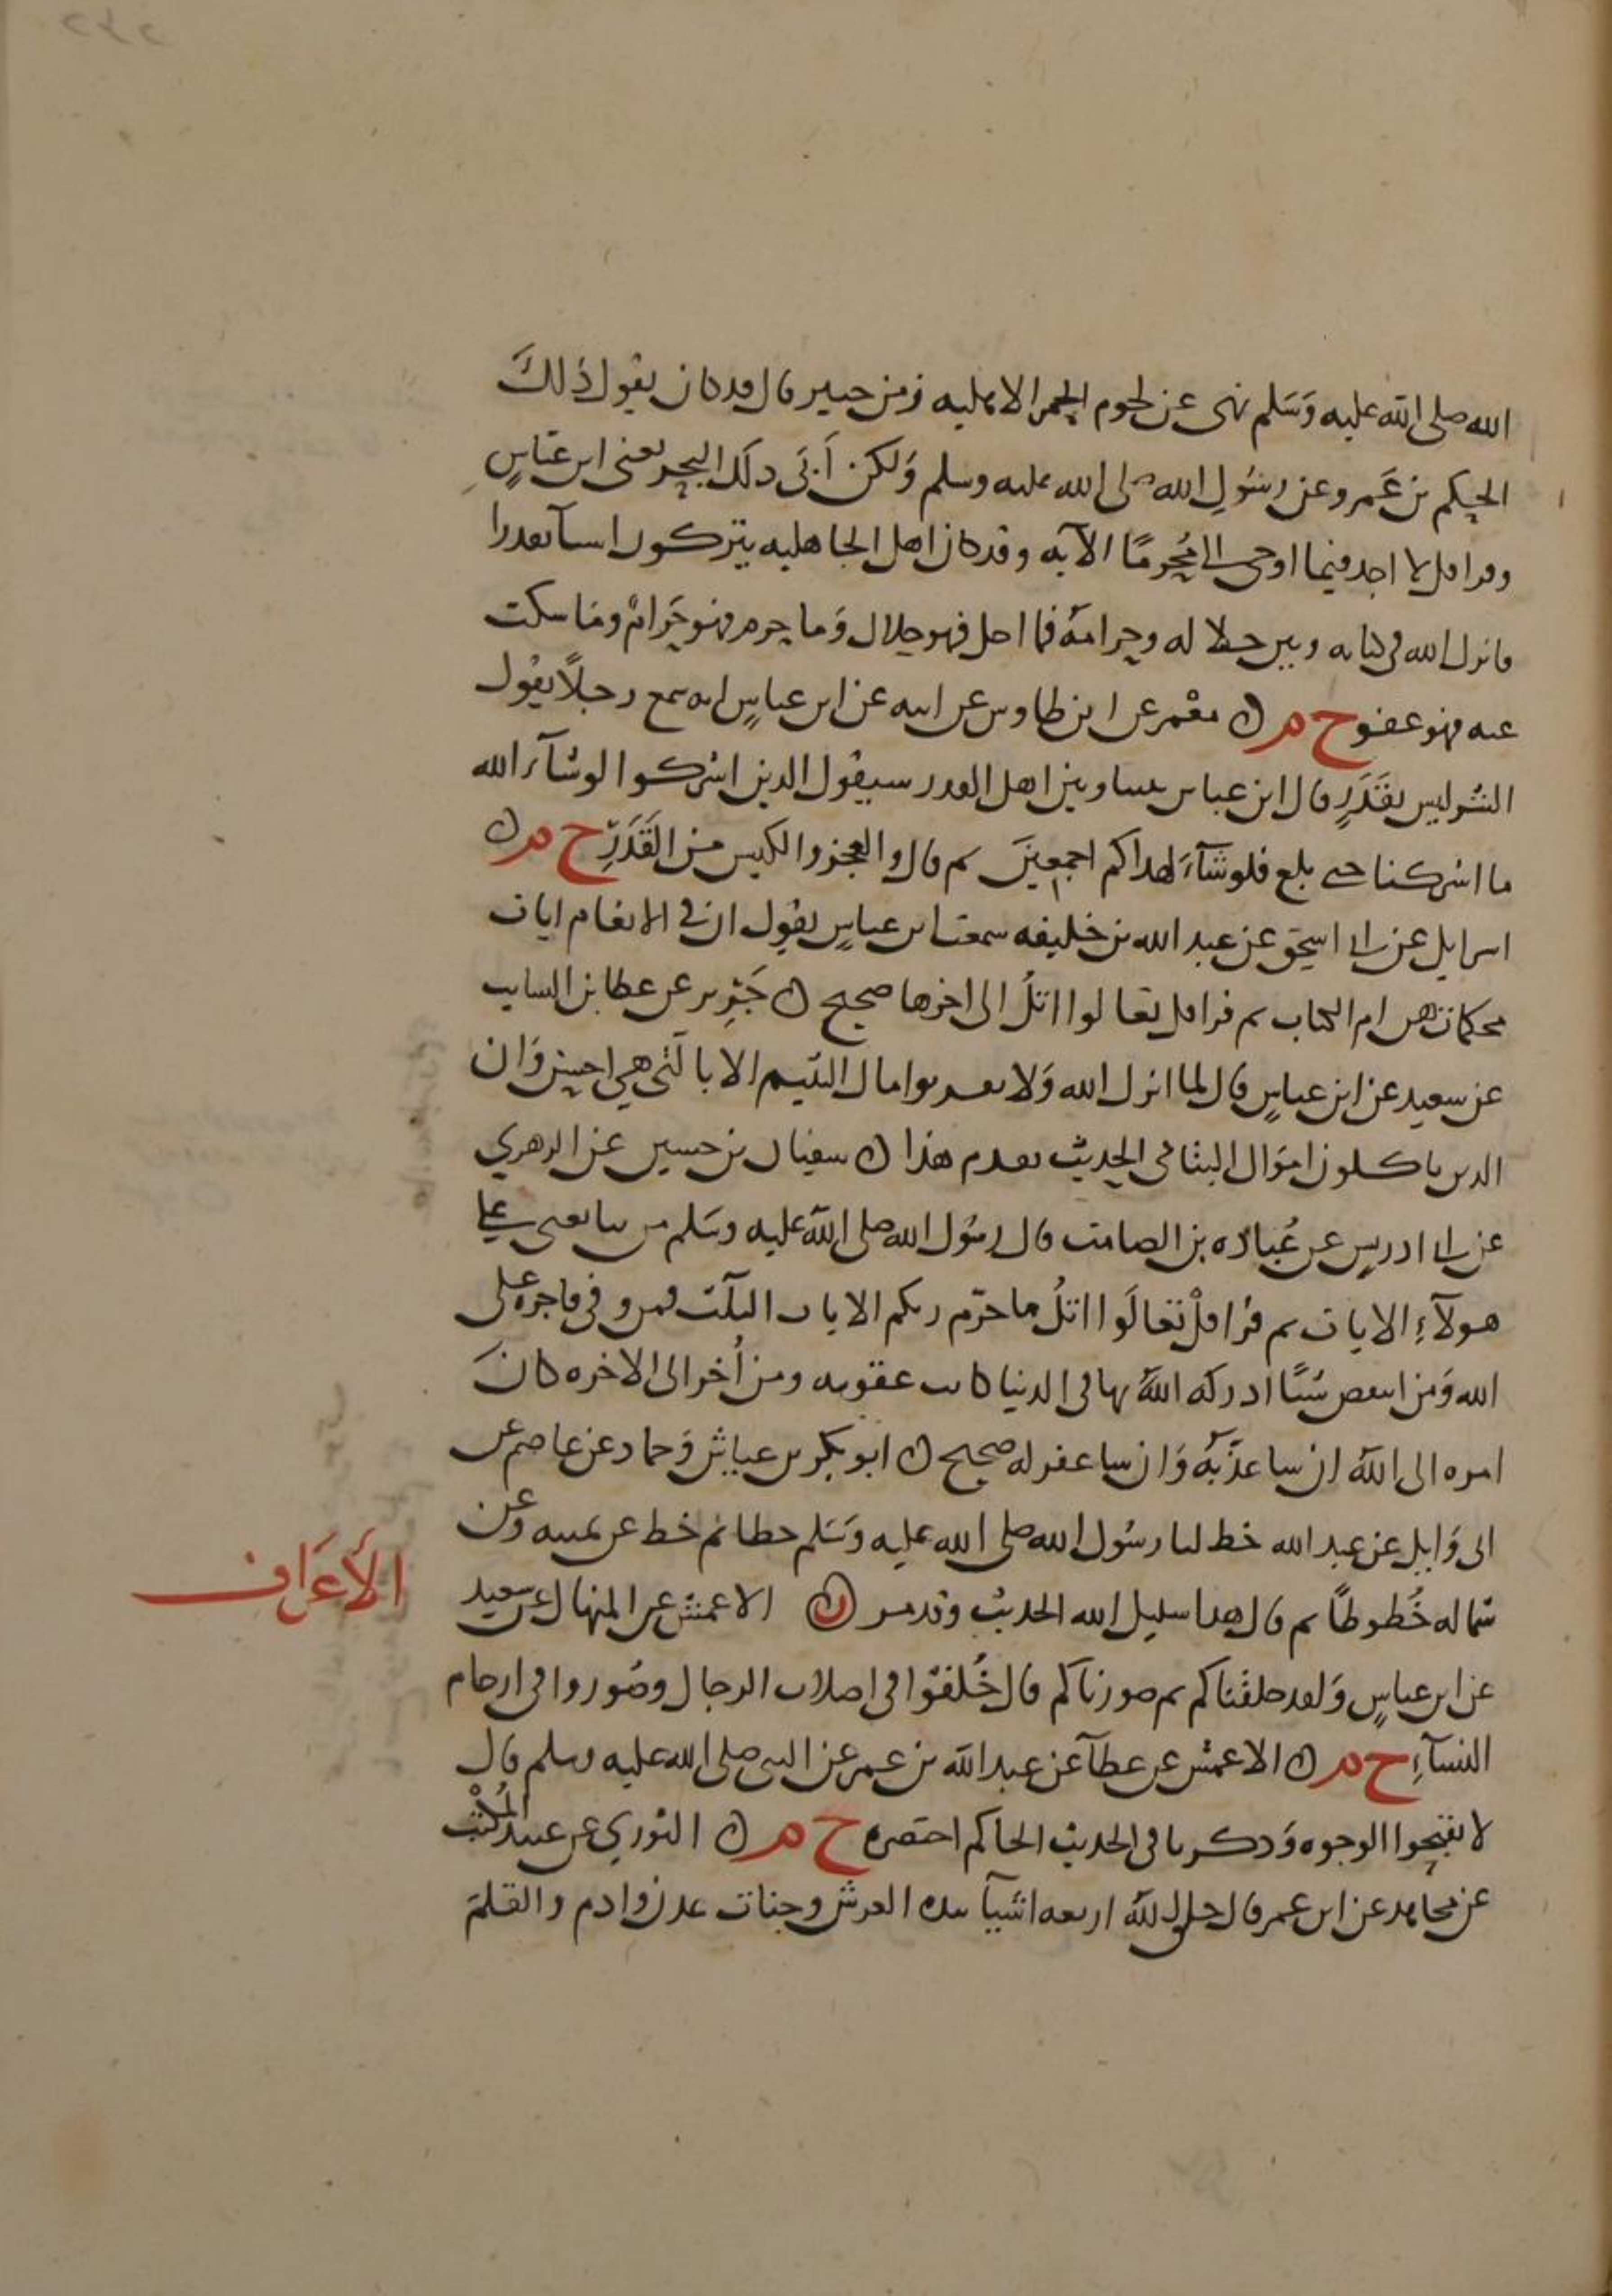 الله صلى الله عليه وَسَلم نهى عن لحوم الحمر الاهليه زمن خيبر قال قد كان يقول ذلكَ
الحكم بن عَمرو عن رسُولِ الله صلى الله عليه وسلم وَلكن أَبَى ذلك البحر يعنى ابن عبَّاسٍ
وقرا قل لا اجد فيما اوحى الي مُحرمًا الآيه وقد كان اهل الجاهليه يتركون اشيآ تقذرا
فانزل الله فى كتابه وبين حلاله وحرامهُ فما احل فهو حلال وَما حرم فهو حَرامٌ وما سكت
عنه فهو عفو ح م ن معْمر عن ابن طاوس عن ابيه عن ابن عباسٍ انه سمع رجلًا يقول
الشر ليس بقَدَرٍ فقال ابن عباس بيننا وبين اهل القدر سيقول الذين اشركوا لو شآءَ الله
ما اشركنا حتى بلغ فلو شآءَ لهداكم اجمعينَ ثم قال والعجز والكيس من القَدَرِ ح م ن
اسرايل عن ابي اسحق عن عبد الله بن خليفه سمعت ابن عباسٍ يقول ان في الانعام ايات
محكمات هن ام الكتاب ثم قرا قل تعالوا اتلُ الى اخرها صحيح ن جَرِير عن عطا بن السايب
عن سعيد عن ابن عباسٍ قال لما انزل الله وَلا تقربوا مال اليتيم الا بالتي هي احسن وَان
الذين ياكلون اموَال اليتامى الحديث تقدم هذا ن سفيان بن حسين عن الزهري
عن ابي ادريس عن عُبَاده بن الصامت قال رسُول الله صلى الله عليه وسَلم من يبايعنى على
هولآءِ الايات ثم قرا قلْ تعالَوا اتلُ ما حرّم ربكم الايات الثلث فمن وفى فاجره على
الله وَمن انتقص شيًا ادركه اللهُ بها فى الدنيا كانت عقوبته ومن أُخر الى الاخره كانَ
امره الى الله ان شا عذّبَهُ وَان شا غفر له صحيح ن ابو بكر بن عياش وَحماد عن عاصم عن
ابى وَايل عن عبد الله خط لنا رسُول الله صلى الله عليه وَسَلم خطا ثم خط عن يمينه وعن
شماله خُطوطًا ثم قال هذا سبيل الله الحديث وقد مر ن الاعمش عن المنهال عن سعيد
الأعرَاف
عن ابن عباسٍ وَلقد خلقناكم ثم صورناكم قال خُلقوُا فى اصلاب الرجال وصُوروا فى ارحام
النسآءِ ح م ن الاعمش عن عطآ عن عبد الله بن عمر عن النبى صلى الله عليه وسلم قال
لا تقبحوا الوجوه وَذكر باقى الحديث الحاكم اختصره ح م ن الثوري عن عبيد المُكْتِب
عن مجاهد عن ابن عمر قال خلق اللهُ اربعه اشيآ بيده العرش وجنات عدن وادم والقلم